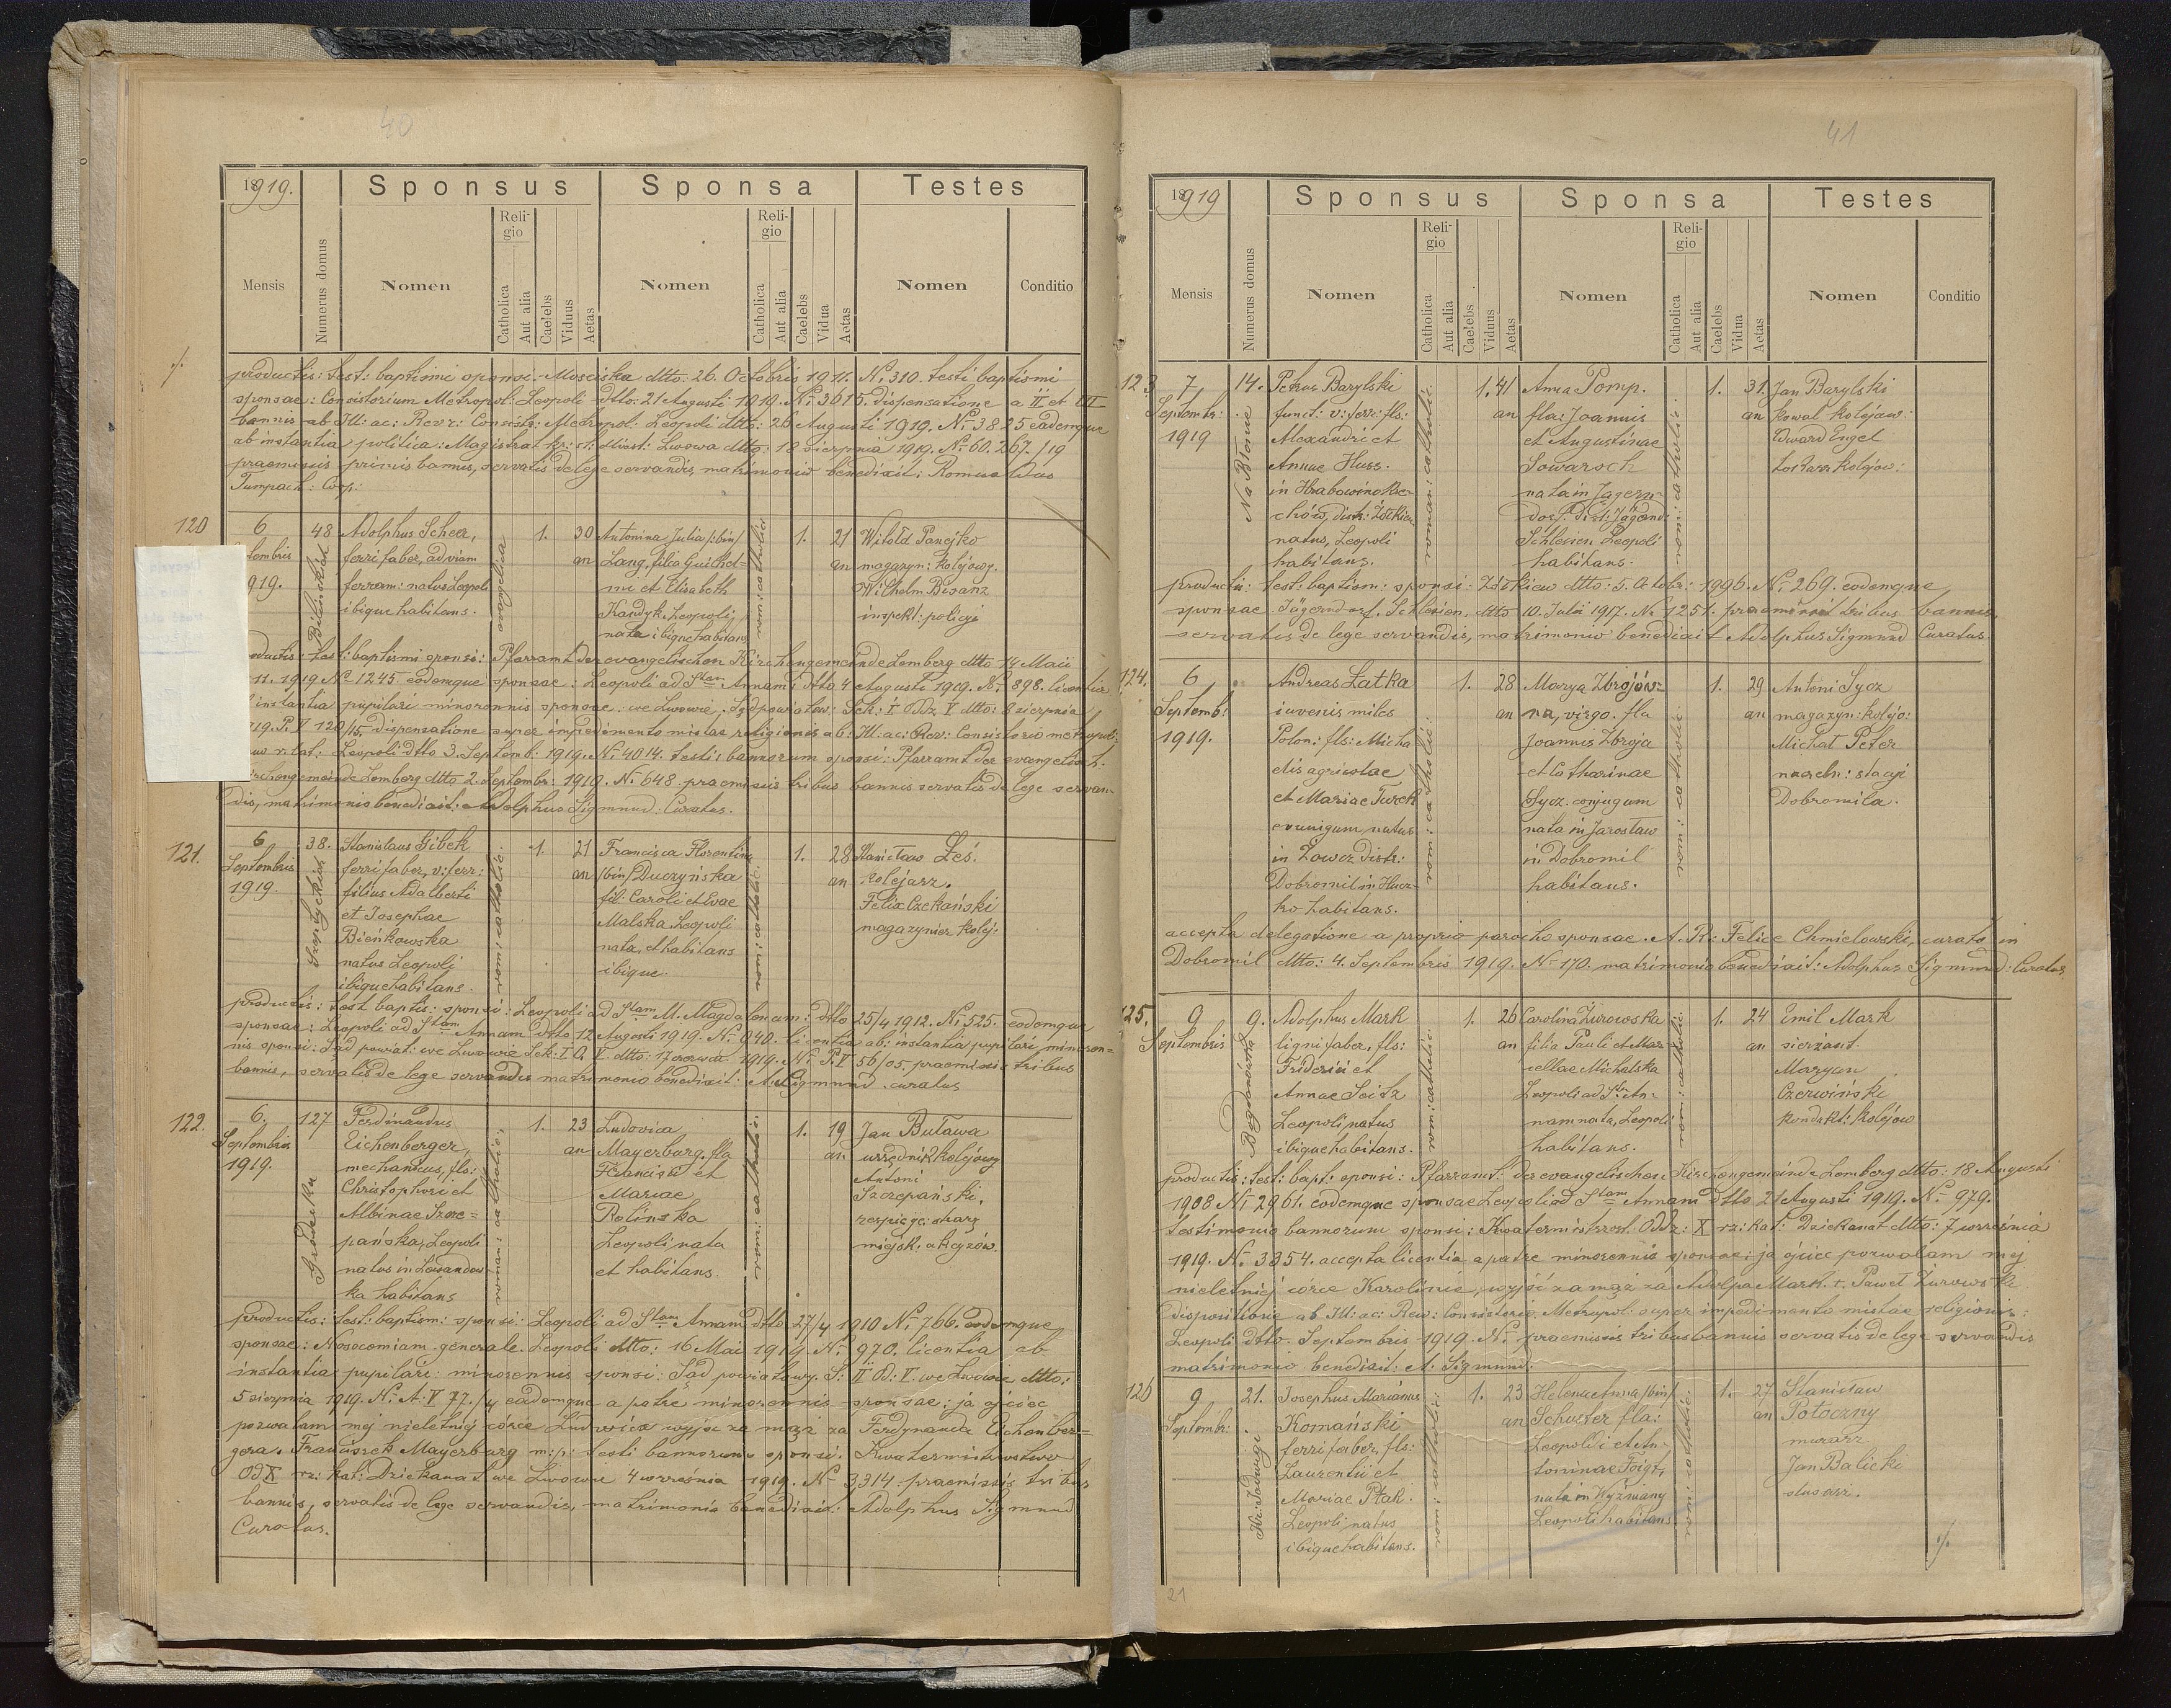 40
1919.
Sponsus
Sponsa
Testes
Mensis
Numerus domus
Nomen
Religio
Catholica
Aut alia
Caelebs
Viduus
Aetas
Nomen
Religio
Catholica
Aut alia
Caelebs
Vidua
Aetas
Nomen
Conditio
productis: test: baptismi sponsi - Mosciska dtto: 26. Octobris 1911. No 310. testi baptismi
sponsae: Consistorium Metropol: Leopoli dtto: 21 Augusti 1919. No 3615. dispensatione a II et III
bannis ab Ill: ac: Revr: Consist: Metropol: Leopoli dtto: 26 Augusti 1919. No 3825 eademque
ab instantia politica: Magistrat kr: st: Miast: Lwowa dtto: 18 sierpnia 1919. No 60.267/19
praemissis primis bannis, servatis de lege servandis, matrimonio benedixit: Romualdus
Tumpach: Coop:
120
6
tembris
919.
48
Bilińskich
Adolphus Scheer,
ferri faber, ad viam
ferram: natus Leopoli
ibique habitans.
evangelica
1.
30
an
Antonina Julia /:bin/
Lang, filia Guilhel=
mi et Elisabeth
Kandyk. Leopoli
nata ibique habitans
rom: catholic
1.
21
an
Witold Panejko
magazyn: kolejowy.
Wilhelm Bisanz
inspekt: policji
productis: test: baptismi sponsi: Pfarramt der evangelischen Kirchengemeinde Lemberg dtto 14 Maii
11. 1919 No 1245 eodemque sponsae: Leopoli ad Stam Annam dtto 4 Augusti 1919. No 898. licentia
instantia pupilari minorennis sponsae: we Lwowie. Sąd powiatow: Sek: I Odz V dtto: 8 sierpnia
1919. P. V 120/15. dispensatione super impedimento mixtae religionis ab: Ill: ac: Rev: Consistorio metropoli
r. lat: Leopoli dtto 3. Septemb: 1919. No 4014. testi: bannorum sponsi: Pfarramt der evangelisch.
Kirchengemeinde Lemberg dtto 2. Septembr: 1919. No 648. praemissis tribus bannis servatis de lege servan
dis, matrimonio benedixit: Adolphus Sigmund: Curatus.
121.
6
Septembris
1919.
38.
Szeptyckich
Stanislaus Gibek
ferri faber, v: ferr:
filius Adalberti
et Josephae
Bieńkowska
natus Leopoli
ibique habitans.
rom: catholic:
1.
21
an
Francisca Florentina
/bin/ Duczyńska
fil: Caroli et Evae
Malska Leopoli
nata, et habitans
ibique
rom: catholic:
1.
28
an
Stanisław Leś.
kolejarz.
Felix Czekański
magazynier kolej:
productis: test baptis: sponsi: Leopoli ad Stam M. Magdalenam: dtto 25/4 1912. No 525. eodemque
sponsae: Leopoli ad Stam Annam dtto 12 Augusti 1919. No 940. licentia ab: instantia pupilari minoren=
nis sponsi: Sąd powiat: we Lwowie Sek: I O. V. dtto: 17 czerwca 1919. No P. V 56/05. praemissis tribus
bannis, servatis de lege servandis matrimonio benedixit: A. Sigmund curatus
122.
6.
Septembris
1919.
127
Gródecka
Ferdinandus
Eichenberger,
mechanicus, fls:
Christophori et
Albinae Szcze=
pańska, Leopoli
natus in Lewandow
ka habitans
roman: catholic:
1.
23
an
Ludovica
Mayerburg. fla
Francisci et
Mariae
Rolińska
Leopoli nata
et habitans.
rom: catholic:
1.
19
an
Jan Buława
urzędnik kolejowy
Antoni
Szczepański.
respicje: straży
miejsk: akcyzów.
productis: test: baptism: sponsi: Leopoli ad Stam Annam dtto 27/4 1910 No 766. eodemque
sponsae: Nosocomiam generale Leopoli dtto: 16 Mai 1919 No 970. licentia ab
instantia pupilari: minorennis sponsi: Sąd powiatowy. S: II O: V. we Lwowie dtto:
5 sierpnia 1919. No A: V 77/4 eademque a patre minorennis sponsae: ja ojciec
pozwalam mej nieletniej córce Ludwice wyjść za mąż za Ferdynanda Eichenber=
gera. Franciszek Mayerburg m:p: testi bannorum sponsi: Kwatermistrzostwo
Od X rz: kat: Dziekanat we Lwowie 4 września 1919. No 3314. praemissis tribus
bannis, servatis de lege servandis, matrimonio benedixit: Adolphus Sigmund
Curatus.
41
1919
Sponsus
Sponsa
Testes
Mensis
Numerus domus
Nomen
Religio
Catholica
Aut alia
Caelebs
Viduus
Aetas
Nomen
Religio
Catholica
Aut alia
Caelebs
Vidua
Aetas
Nomen
Conditio
123
7
Septembr:
1919
14.
Na Błonie
Petrus Barylski
funct: v: ferr: fls:
Alexandri et
Annae Huss.
in Hrabowinokle-
chów, distr: Żółkiew
natus, Leopoli
habitans.
roman: catholic:
1.
41
an
Anna Pomp.
fla: Joannis
et Augustinae
Sowarsch
nata in Jagern-
dorf. Dist: Jägernd:
Schlesien Leopoli
habitans.
rom: catholic:
1.
31
an
Jan Barylski
kowal kolejow:
Edward Engel
tokarz kolejow:
productis: test: baptism: sponsi: Żółkiew dtto: 5. Octobr: 1996. No 269. eodemque
sponsae. Jägerndorf. Schlesien. dtto 10. Julii 1917. No 1257. praemissis tribus bannis,
servatis de lege servandis, matrimonio benedixit Adolphus Sigmund Curatus.
124.
6
Septemb:
1919.
Andreas Łatka
iuvenis miles
Polon: fls: Micha
elis agricolae
et Mariae Turek
coniugum natus
in Zowcz Distr:
Dobromil in Hucz-
ko habitans.
rom: catholic:
1.
28
an
Marya Zbrojów=
na, virgo. fla
Joannis Zbroja
et Catharinae
Sycz. conjugum
nata in Jarosław
in Dobromil
habitans.
rom: catholic:
1.
29
an
Antoni Sycz
magazyn: kolejo:
Michał Peter
naczeln: stacji
Dobromila.
accepta delegatione a proprio parocho sponsae. A. R: Felice Chmielowski, curato in
Dobromil dtto: 4. Septembris 1919. No 170. matrimonio benedixit: Adolphus Sigmund: Curatus
125.
9
Septembris
9.
Bogdanówka
Adolphus Mark
ligni faber, fls:
Friderici et
Annae Seitz
Leopoli natus
ibique habitans.
rom: catholic:
1.
26
an
Carolina Żurowska
filia Pauli et Mar-
cellae Michalska
Leopoli ad Stam An-
nam nata, Leopoli
habitans.
rom: catholic:
1.
24
an
Emil Mark
sierżant.
Maryan
Czerwiński
kondukt: kolejow
productis: test: bapt: sponsi: Pfarramt: der evangelischen Kirchengemeinde Lemberg dtto: 18 Augusti
1908 No 2961. eodemque sponsae Leopoli ad Stam Annam dtto 21 Augusti 1919. No 979.
testimonio bannorum sponsi: Kwatermistrzost. Odz: X rz: kat: Dziekanat dtto: 7 września
1919. No 3354. accepta licentia a patre minorennis sponsae: ja ojciec pozwalam mej
nieletniej córce Karolinie, wyjść za mąż za Adolfa Mark. r. Paweł Żurowski
dispositione ab Ill: ac: Rev: Consistorio Metropol: super impedimento mixtae religionis:
Leopoli dtto. Septembris 1919. No praemissis tribus bannis servatis de lege servandis
matrimonio benedixit: A. Sigmund:
126
9
Septembr:
21.
Kr: Jadwigi
Josephus Marianus
Komański
ferri faber, fls:
Laurentii et
Mariae Ptak.
Leopoli natus
ibique habitans.
rom: catholic:
1.
23
an
Helena Anna /bin/
Schuster fla:
Leopoldi et An-
toninae Foigt,
nata in Wyżniany
Leopoli habitans.
rom: catholic:
1.
27
an
Stanisław
Potoczny
murarz
Jan Balicki
slusarz.
./.
21